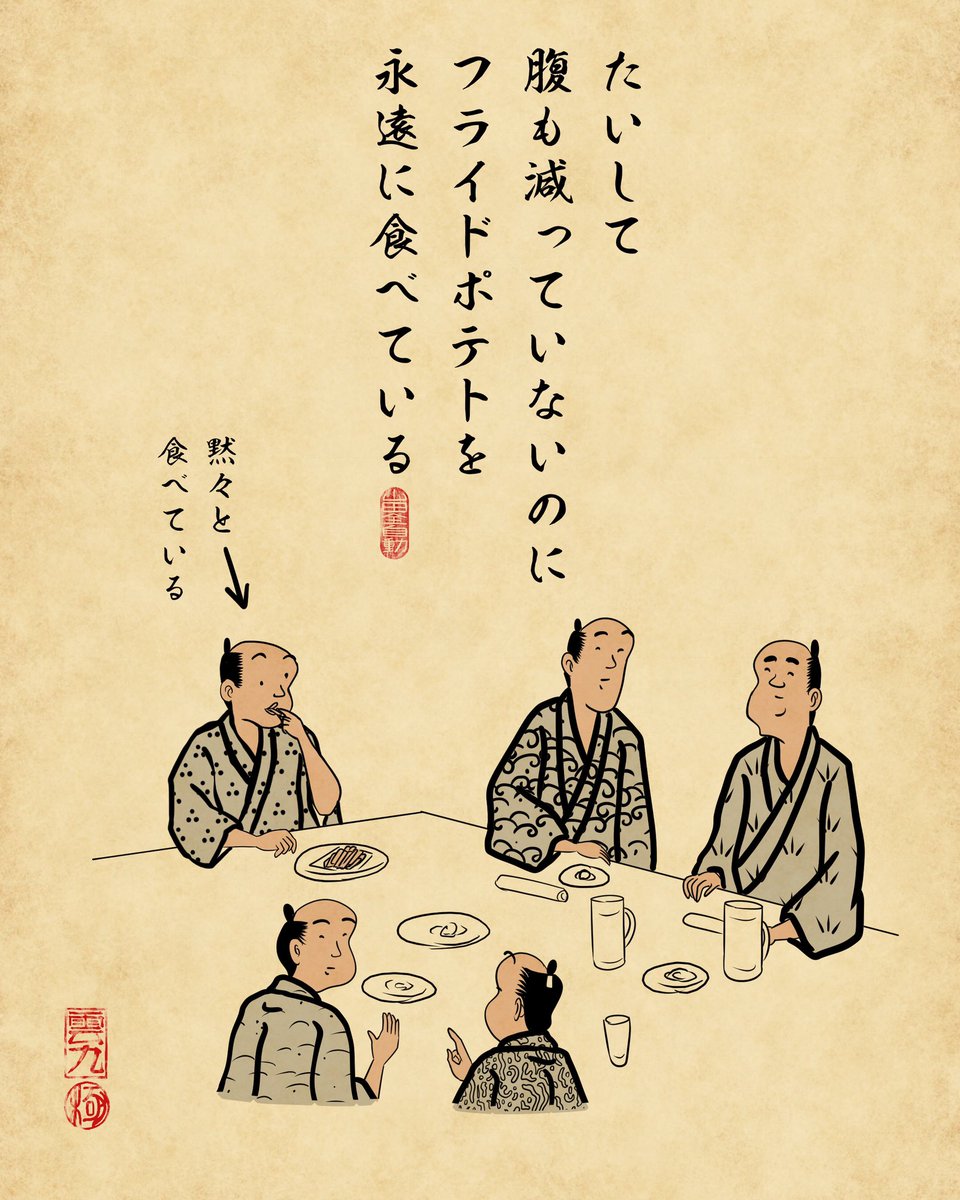 たいして
腹も減っていないのに
フライドポテトを
永遠に食べている
黙々と
食べている